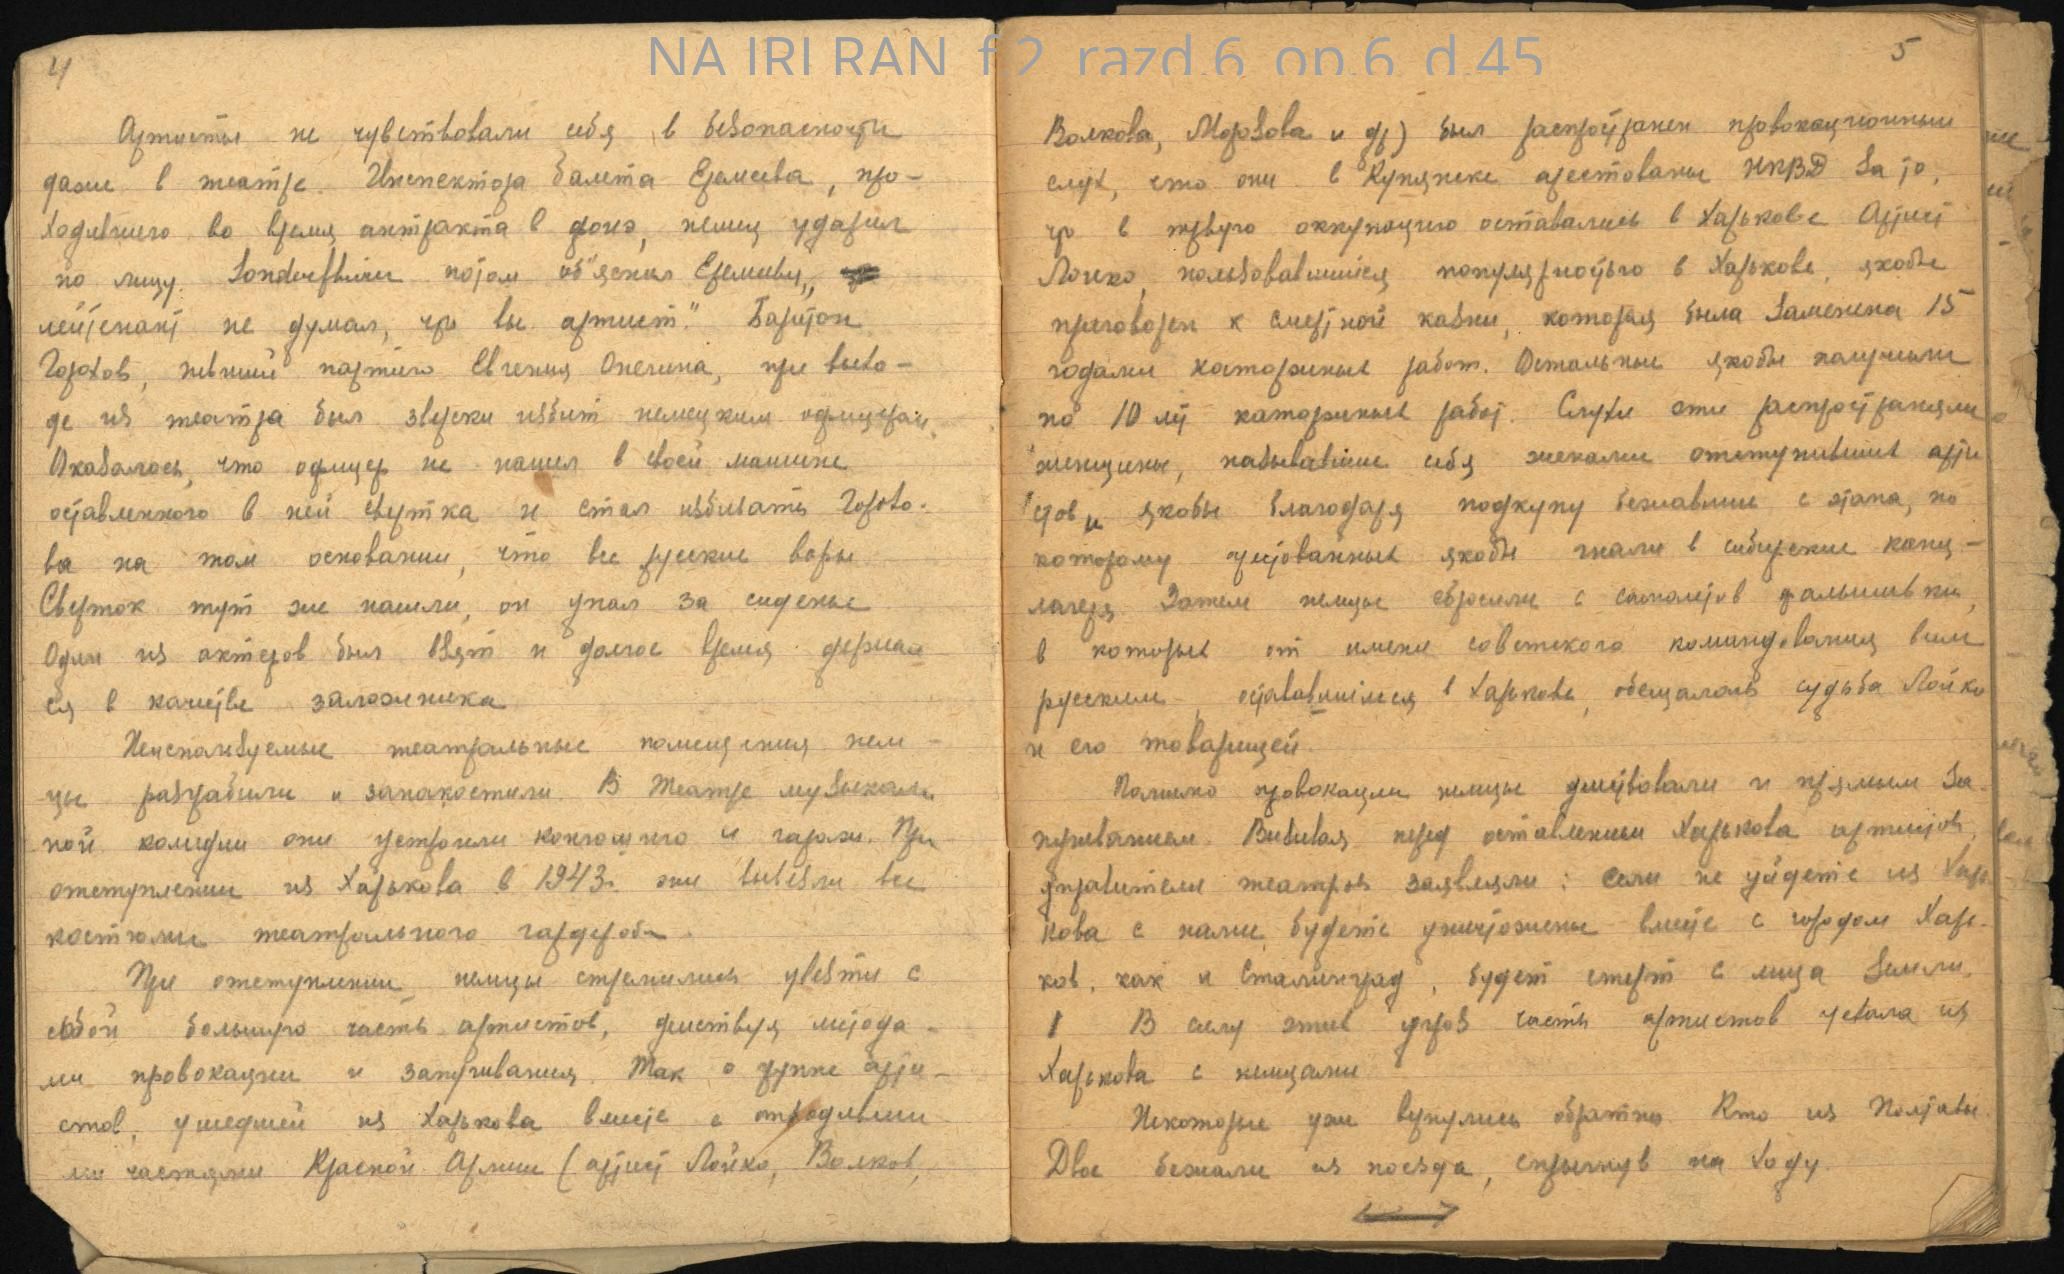 NA IRI RAN f.2 razd.6 op.6 d.45
4
Артисты не чувствовали себя в безопасности
даже в театре. Инспектора балета Еремеева, про-
ходившего во время антракта в фойэ, немец ударил
по лицу. Sonderführer потом об"яснил Еремееву, "
лейтенант не думал, что вы артист." Баритон
Горохов, певший партию Евгения Онегина, при выхо-
де из театра был зверски избит немецким офицером.
Оказалось, что офицер не нашел в своей машине
оставленного в ней свертка и стал избивать Горохо-
ва на том основании, что все русские воры.
Сверток тут же нашли, он упал за сиденье
Один из актеров был взят и долгое время держал
ся в качестве заложника
Неиспользуемые театральные помещения нем-
цы разграбили и запакостили. В Театре музыкаль
ной комедии они устроили конюшню и гараж. При
отступлении из Харькова в 1943г. они вывезли все
костюмы театрального гардероба.
При отступлении немцы стремились увезти с
собой большую часть артистов, действуя метода-
ми провокации и запугивания. Так о группе арти-
стов, ушедшей из Харькова вместе с отходивши
ми частями Красной Армии (артист Лойко, Волков,
5
Волкова, Морозова и др) был распространен провокационный
слух, что они в Купянске арестованы НКВД за то,
что в первую оккупацию оставались в Харькове Артист
Лойко, пользовавшийся популярностью в Харькове, якобы
приговорен к смертной казни, которая была заменена 15
годами каторжных работ. Остальные якобы получили
по 10 лет каторжных работ. Слухи эти распространяли
женщины, называвшие себя женами отступивших арти
стов и якобы благодаря подкупу бежавшие с этапа, по
которому арестованных якобы гнали в сибирские конц-
лагеря. Затем немцы сбросили с самолетов фальшивки,
в которых от имени советского командования всем
русским, остававшимся в Харькове, обещалась судьба Лойко
и его товарищей.
Помимо провокации немцы действовали и прямым за
пугиванием. Вызывая перед оставлением Харькова артистов,
правители театров заявляли: если не уйдете из Харь
кова с нами, будете уничтожены вместе с городом Харь-
ков, как и Сталинград, будет стерт с лица земли.
В силу этих угроз часть артистов уехала из
Харькова с немцами
Некоторые уже вернулись обратно. Кто из Полтавы.
Двое бежали из поезда, спрыгнув на ходу.